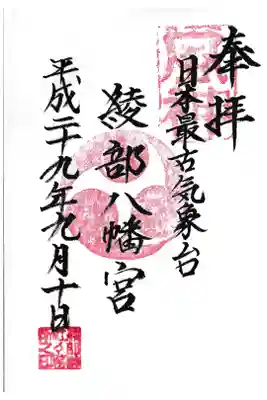 奉拝
日本最古気象台
綾部八幡宮
平成二十九年九月十日